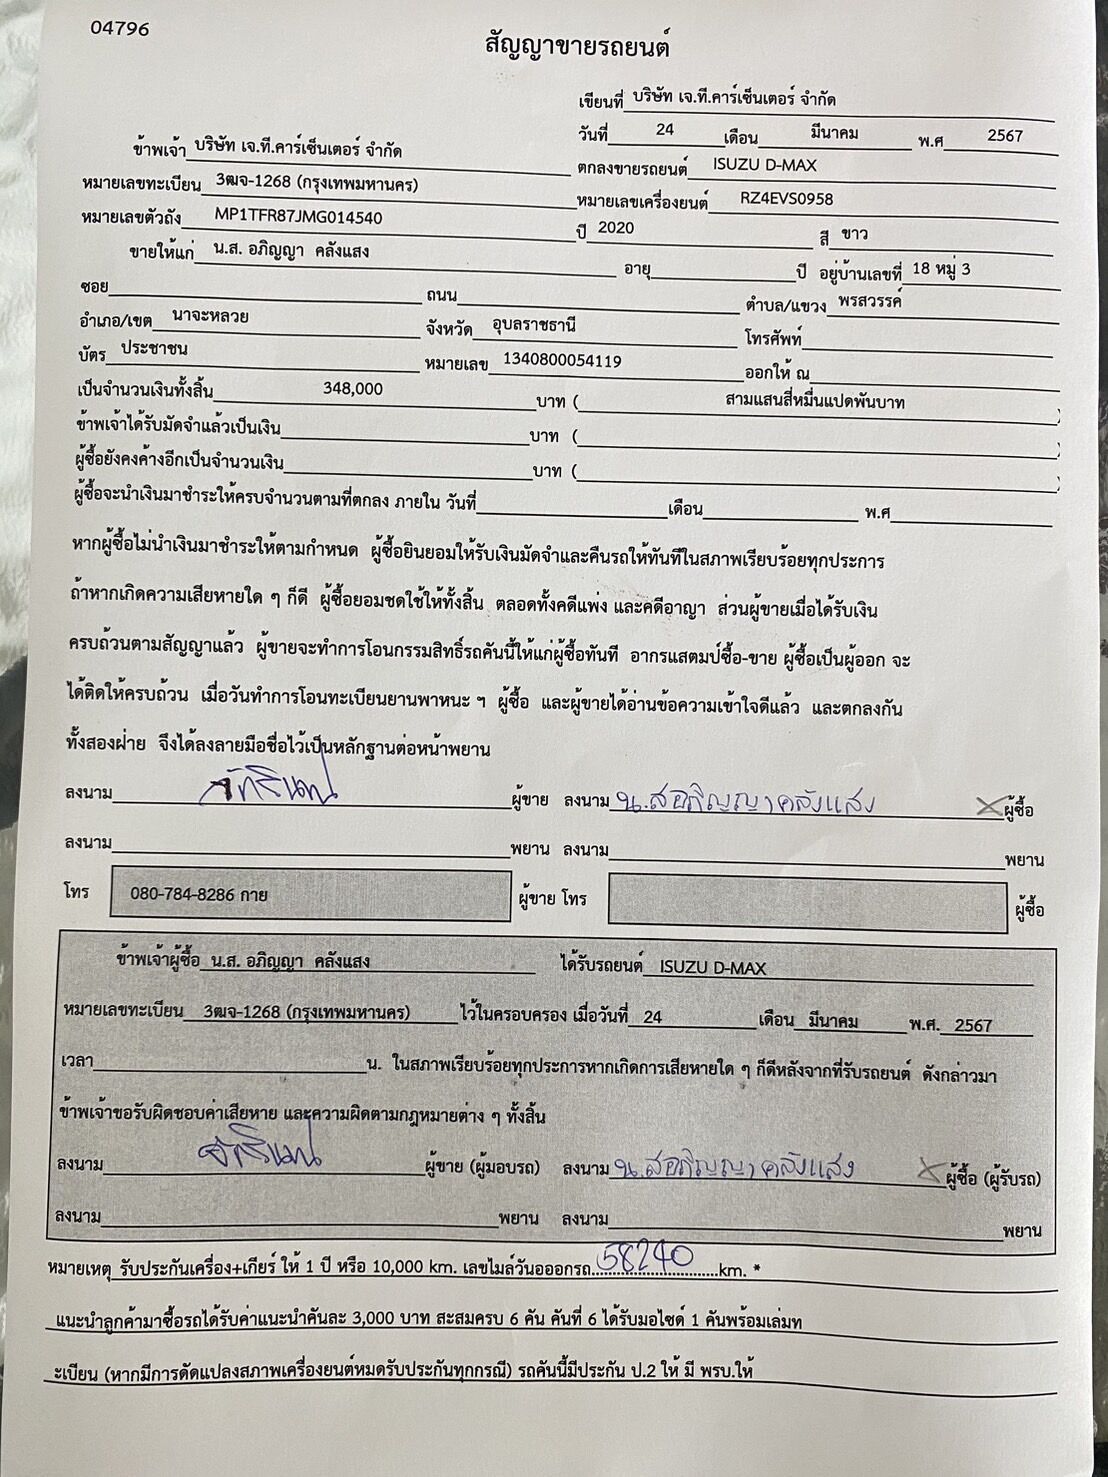 04796
สัญญาขายรถยนต์
เขียนที่ บริษัท เจ.ที.คาร์เซ็นเตอร์ จำกัด
วันที่ 24 เดือน มีนาคม พ.ศ 2567
ข้าพเจ้า บริษัท เจ.ที.คาร์เซ็นเตอร์ จำกัด ตกลงขายรถยนต์ ISUZU D-MAX
หมายเลขทะเบียน 3ฒจ-1268 (กรุงเทพมหานคร) หมายเลขเครื่องยนต์ RZ4EVS0958
หมายเลขตัวถัง MP1TFR87JMG014540 ปี 2020 สี ขาว
ขายให้แก่ น.ส. อภิญญา คลังแสง อายุ ปี อยู่บ้านเลขที่ 18 หมู่ 3
ซอย ถนน ตำบล/แขวง พรสวรรค์
อำเภอ/เขต นาจะหลวย จังหวัด อุบลราชธานี โทรศัพท์
บัตร ประชาชน หมายเลข 1340800054119 ออกให้ ณ
เป็นจำนวนเงินทั้งสิ้น 348,000 บาท ( สามแสนสี่หมื่นแปดพันบาท )
ข้าพเจ้าได้รับมัดจำแล้วเป็นเงิน บาท ( )
ผู้ซื้อยังคงค้างอีกเป็นจำนวนเงิน บาท ( )
ผู้ซื้อจะนำเงินมาชำระให้ครบจำนวนตามที่ตกลง ภายใน วันที่ เดือน พ.ศ
หากผู้ซื้อไม่นำเงินมาชำระให้ตามกำหนด ผู้ซื้อยินยอมให้รับเงินมัดจำและคืนรถให้ทันทีในสภาพเรียบร้อยทุกประการ
ถ้าหากเกิดความเสียหายใด ๆ ก็ดี ผู้ซื้อยอมชดใช้ให้ทั้งสิ้น ตลอดทั้งคดีแพ่ง และคดีอาญา ส่วนผู้ขายเมื่อได้รับเงิน
ครบถ้วนตามสัญญาแล้ว ผู้ขายจะทำการโอนกรรมสิทธิ์รถคันนี้ให้แก่ผู้ซื้อทันที อากรแสตมป์ซื้อ-ขาย ผู้ซื้อเป็นผู้ออก จะ
ได้ติดให้ครบถ้วน เมื่อวันทำการโอนทะเบียนยานพาหนะ ฯ ผู้ซื้อ และผู้ขายได้อ่านข้อความเข้าใจดีแล้ว และตกลงกัน
ทั้งสองฝ่าย จึงได้ลงลายมือชื่อไว้เป็นหลักฐานต่อหน้าพยาน
ลงนาม ผู้ขาย ลงนาม น.ส อภิญญา คลังแสง ผู้ซื้อ
ลงนาม พยาน ลงนาม พยาน
โทร 080-784-8286 กาย ผู้ขาย โทร ผู้ซื้อ
ข้าพเจ้าผู้ซื้อ น.ส. อภิญญา คลังแสง ได้รับรถยนต์ ISUZU D-MAX
หมายเลขทะเบียน 3ฒจ-1268 (กรุงเทพมหานคร) ไว้ในครอบครอง เมื่อวันที่ 24 เดือน มีนาคม พ.ศ. 2567
เวลา น. ในสภาพเรียบร้อยทุกประการหากเกิดการเสียหายใด ๆ ก็ดีหลังจากที่รับรถยนต์ ดังกล่าวมา
ข้าพเจ้าขอรับผิดชอบค่าเสียหาย และความผิดตามกฎหมายต่าง ๆ ทั้งสิ้น
ลงนาม ผู้ขาย (ผู้มอบรถ) ลงนาม น.ส อภิญญา คลังแสง ผู้ซื้อ (ผู้รับรถ)
ลงนาม พยาน ลงนาม พยาน
หมายเหตุ รับประกันเครื่อง+เกียร์ ให้ 1 ปี หรือ 10,000 km. เลขไมล์วันอออกรถ...58240...km. *
แนะนำลูกค้ามาซื้อรถได้รับค่าแนะนำคันละ 3,000 บาท สะสมครบ 6 คัน คันที่ 6 ได้รับมอไซด์ 1 คันพร้อมเล่มท
ะเบียน (หากมีการดัดแปลงสภาพเครื่องยนต์หมดรับประกันทุกกรณี) รถคันนี้มีประกัน ป.2 ให้ มี พรบ.ให้